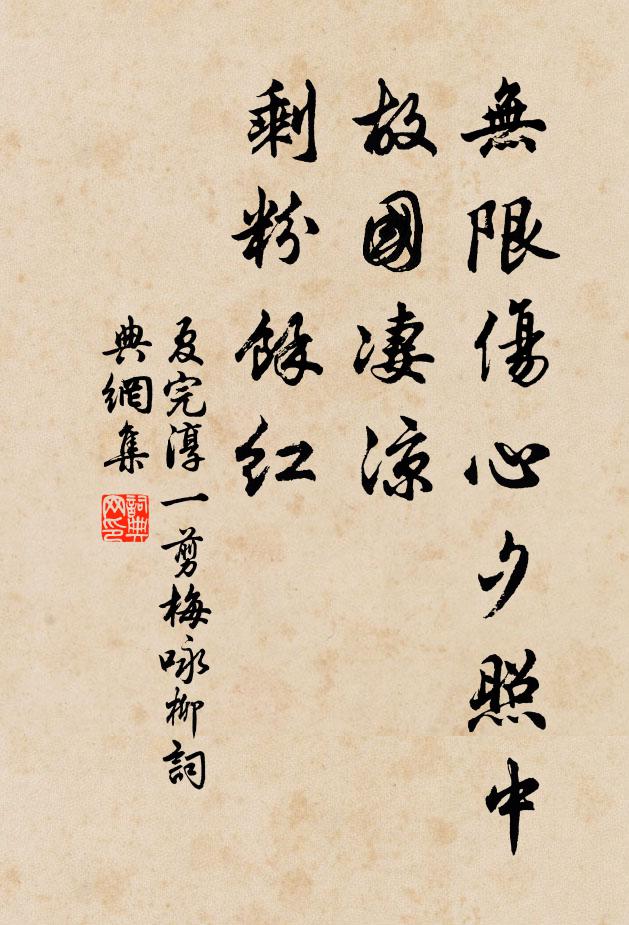 無限傷心夕照中
故國凄涼
剩粉餘紅
夏完淳一剪梅咏柳詞
典網集
詞典網印